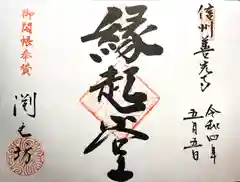 信州善光寺
令和四年
五月五日
縁起堂
御開帳参拝
渕之坊